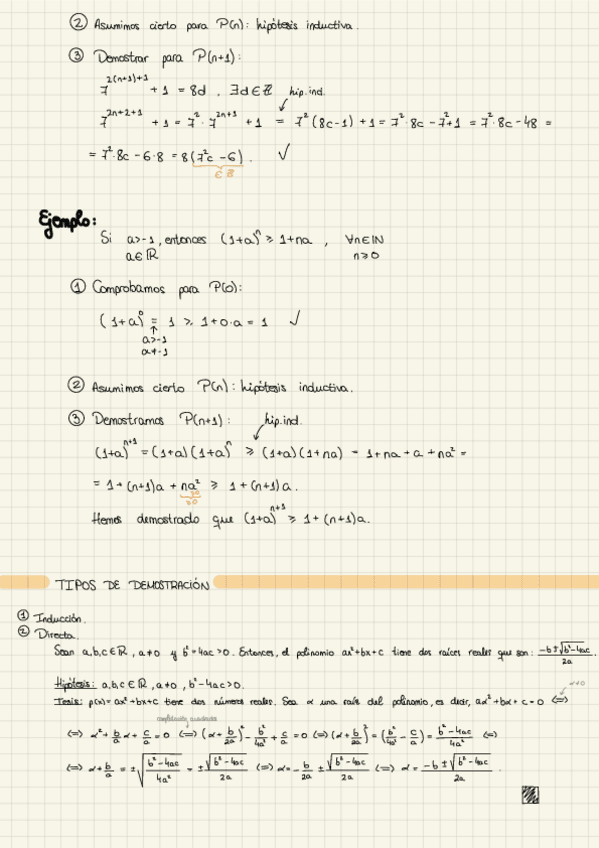 ② Asumimos cierto para P(n): hipótesis inductiva.
③ Demostrar para P(n+1):
7^{2(n+1)+1} + 1 = 8d . ∃d∈ℤ hip. ind.
7^{2n+2+1} + 1 = 7² · 7^{2n+1} + 1 = 7² (8c-1) + 1 = 7²·8c - 7²+1 = 7²·8c - 48 =
= 7²·8c - 6·8 = 8(7²c - 6). ✓
∈ ℤ
Ejemplo:
Si a>-1, entonces (1+a)^n ≥ 1+na , ∀n∈ℕ
a∈ℝ n≥0
① Comprobamos para P(0):
(1+a)^0 = 1 ≥ 1+0·a = 1 ✓
↑
a>-1
a≠-1
② Asumimos cierto P(n): hipótesis inductiva.
③ Demostramos P(n+1): hip. ind.
(1+a)^{n+1} = (1+a)(1+a)^n ≥ (1+a)(1+na) = 1+na+a+na² =
= 1+(n+1)a + na² ≥ 1+(n+1)a.
≥0
≥0
Hemos demostrado que (1+a)^{n+1} ≥ 1+(n+1)a.
TIPOS DE DEMOSTRACIÓN
① Inducción.
② Directa.
Sean a,b,c∈ℝ, a≠0 y b²-4ac>0. Entonces, el polinomio ax²+bx+c tiene dos raíces reales que son: \frac{-b±\sqrt{b²-4ac}}{2a}.
Hipótesis: a,b,c∈ℝ, a≠0, b²-4ac>0.
a≠0
Tesis: p(x)=ax²+bx+c tiene dos números reales. Sea α una raíz del polinomio, es decir, aα²+bα+c=0 ⟺
completando cuadrados
⟺ α²+\frac{b}{a}α+\frac{c}{a}=0 ⟺ (α+\frac{b}{2a})²-\frac{b²}{4a²}+\frac{c}{a}=0 ⟺ (α+\frac{b}{2a})²=(\frac{b²}{4a²}-\frac{c}{a})=\frac{b²-4ac}{4a²} ⟺
⟺ α+\frac{b}{a}=±\sqrt{\frac{b²-4ac}{4a²}}=±\frac{\sqrt{b²-4ac}}{2a} ⟺ α=-\frac{b}{2a}±\frac{\sqrt{b²-4ac}}{2a} ⟺ α=\frac{-b±\sqrt{b²-4ac}}{2a}.